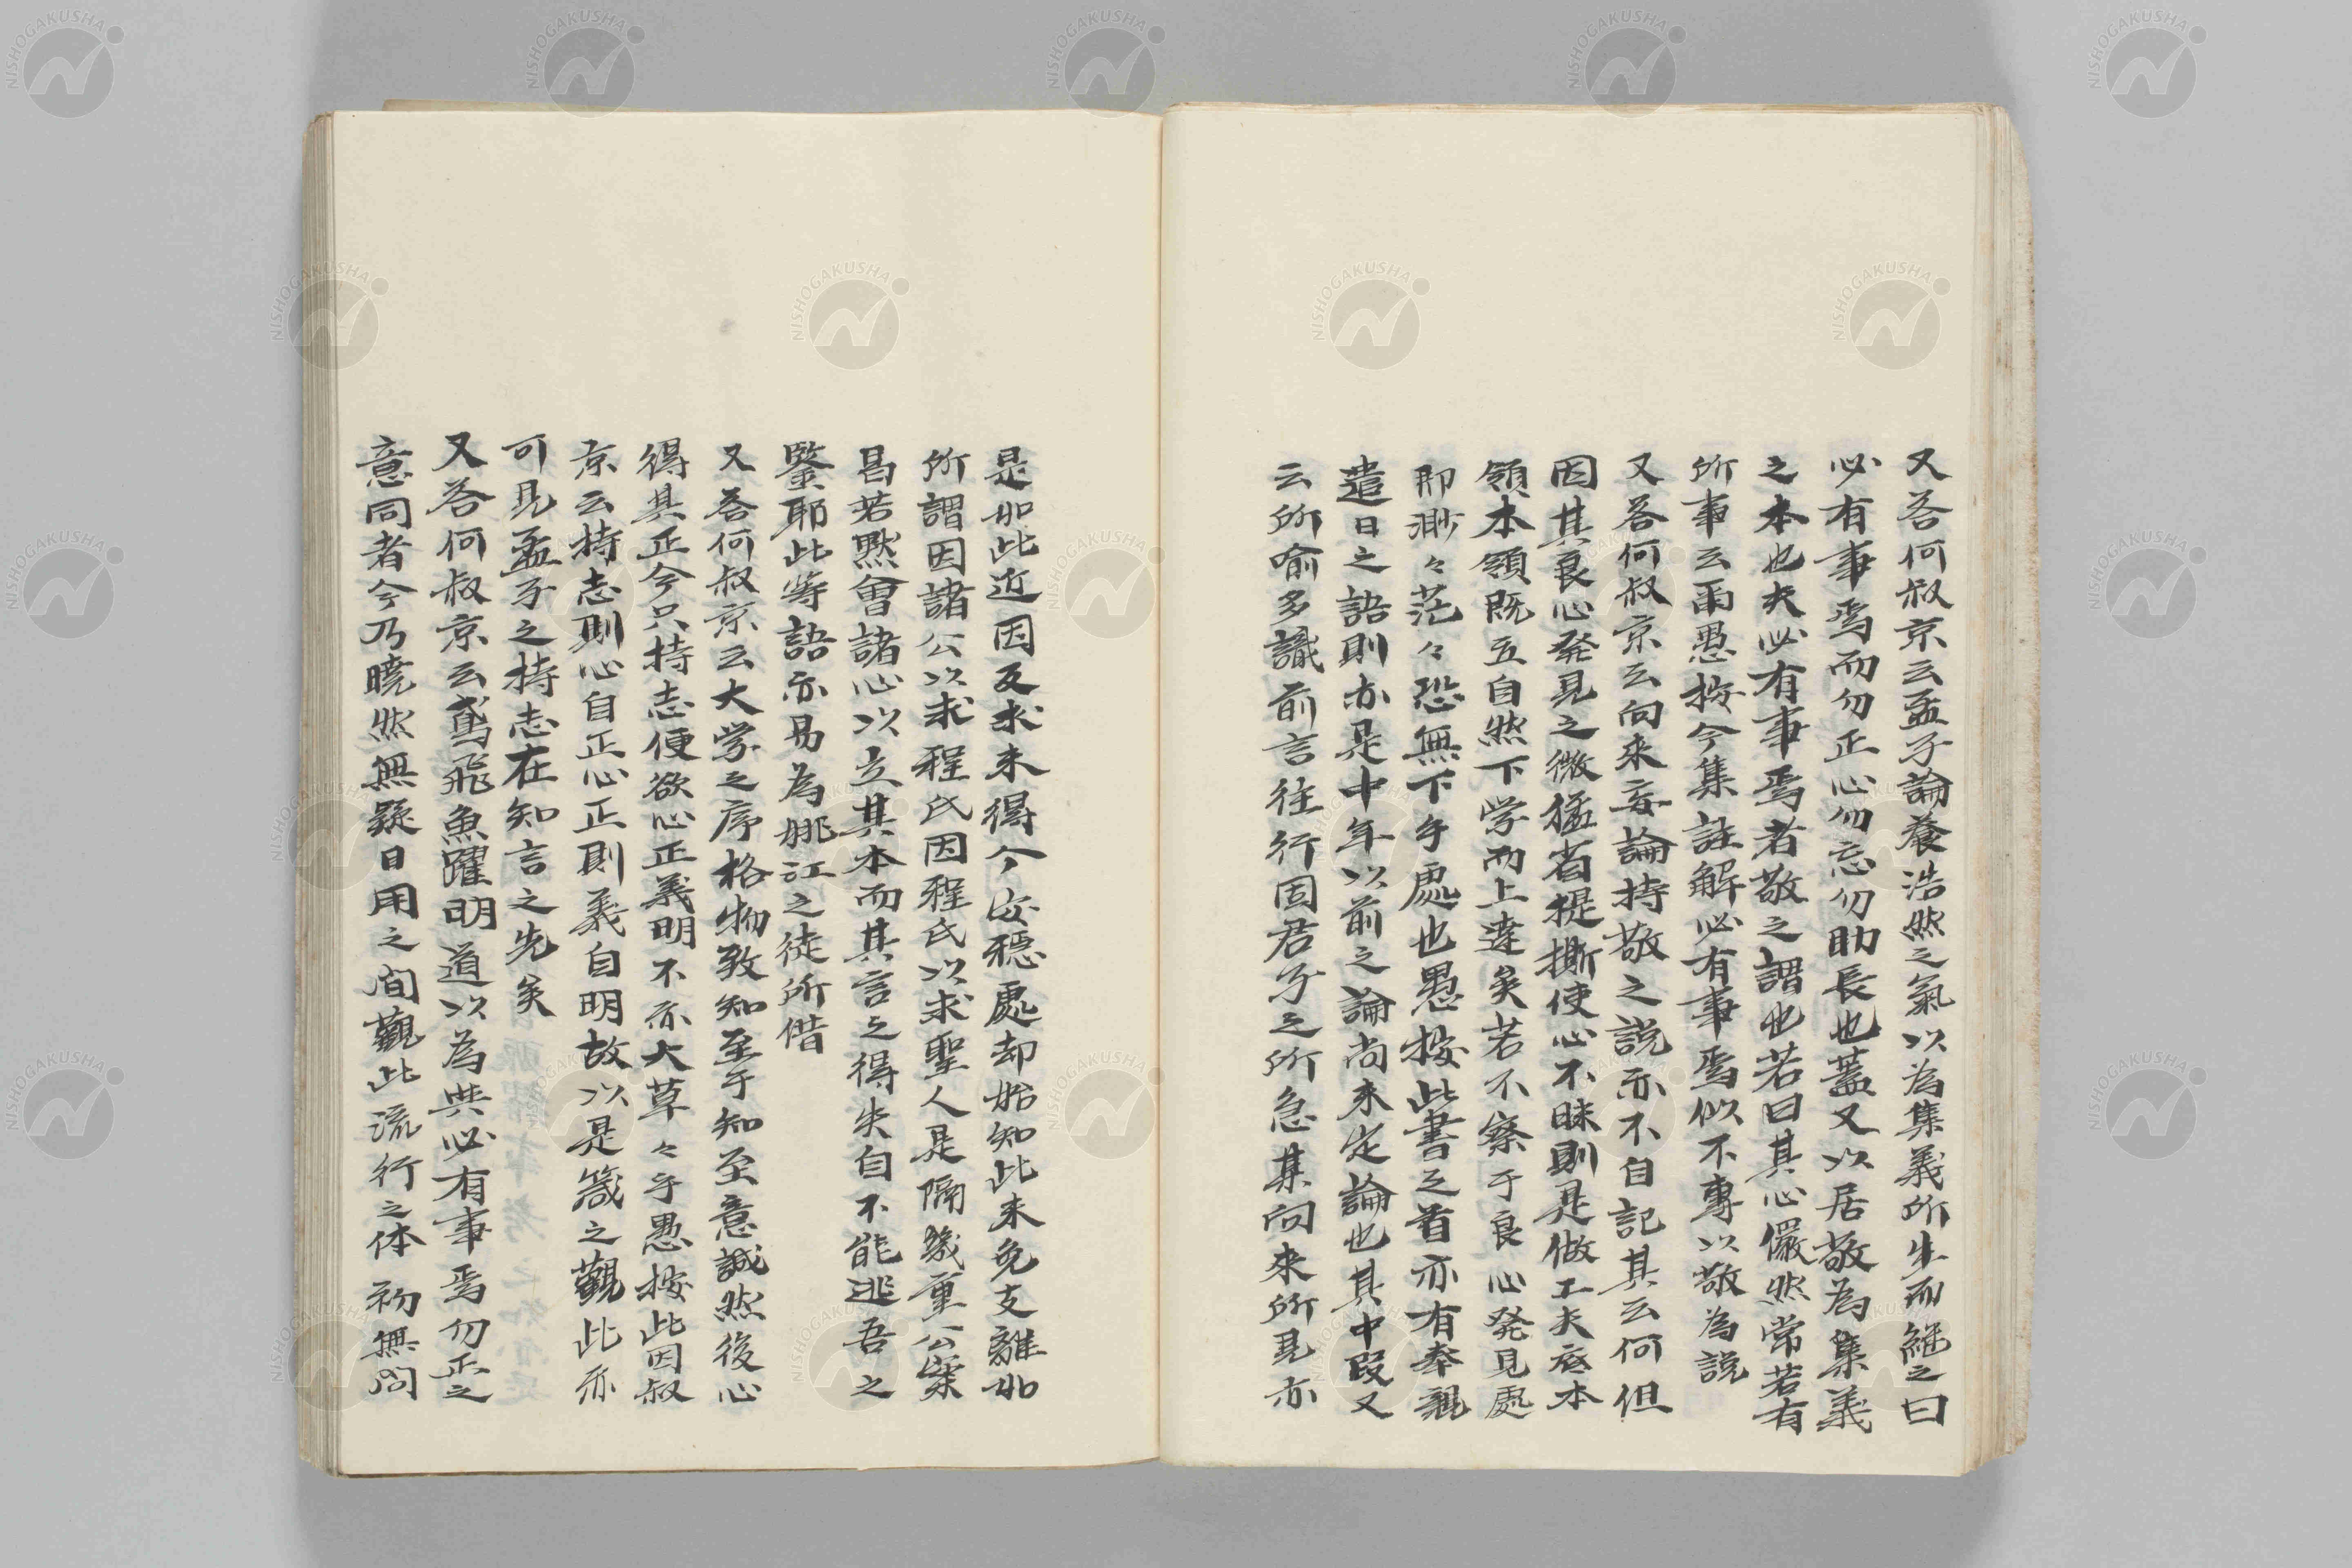 又答何叔京云孟子論養浩然之氣以為集義所生而継之曰
必有事焉而勿正心勿忘勿助長也蓋又以居敬為集義
之本也夫必有事焉者敬之謂也若曰其心儼然常若有
所事云爾愚按今集註解必有事焉似不專以敬為説
又答何叔京云向来妄論持敬之説亦不自記其云何但
因其良心発見之微猛省提撕使心不昧則是做工夫底本
領本領既立自然下学而上達矣若不察于良心発見處
即渺々茫々恐無下手處也愚按此書之首亦有奉親
遣日之語則亦是中年以前之論尚未定論也其中段又
云所喻多識前言往行固君子之所急某向来所見亦
是如此近因反求未得个安穏處却始知此未免支離如
所謂因諸公以求程氏因程氏以求聖人是隔幾重公案
曷若默會諸心以立其本而其言之得失自不能逃吾之
鑒耶此等語亦易為姚江之徒所借
又答何叔京云大学之序格物致知至于知至意誠然後心
得其正今只持志便欲心正義明不亦大草々乎愚按此因叔
京云持志則心自正心正則義自明故以是箴之觀此亦
可見孟子之持志在知言之先矣
又答何叔京云鳶飛魚躍明道以為與必有事焉勿正之
意同者今乃暁然無疑日用之間觀此流行之体初無間
NISHOGAKUSHA